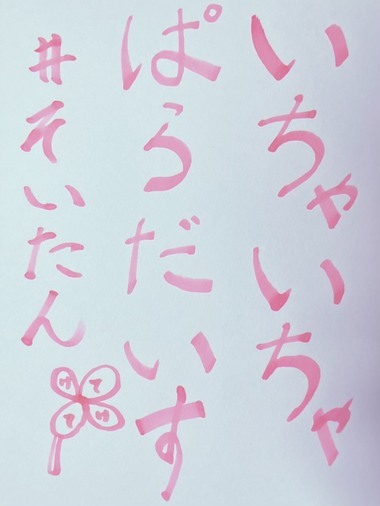 いちゃいちゃ
ぱらだいす
#そいたん